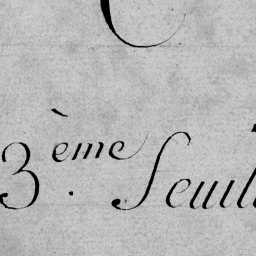 3.ème Feuil